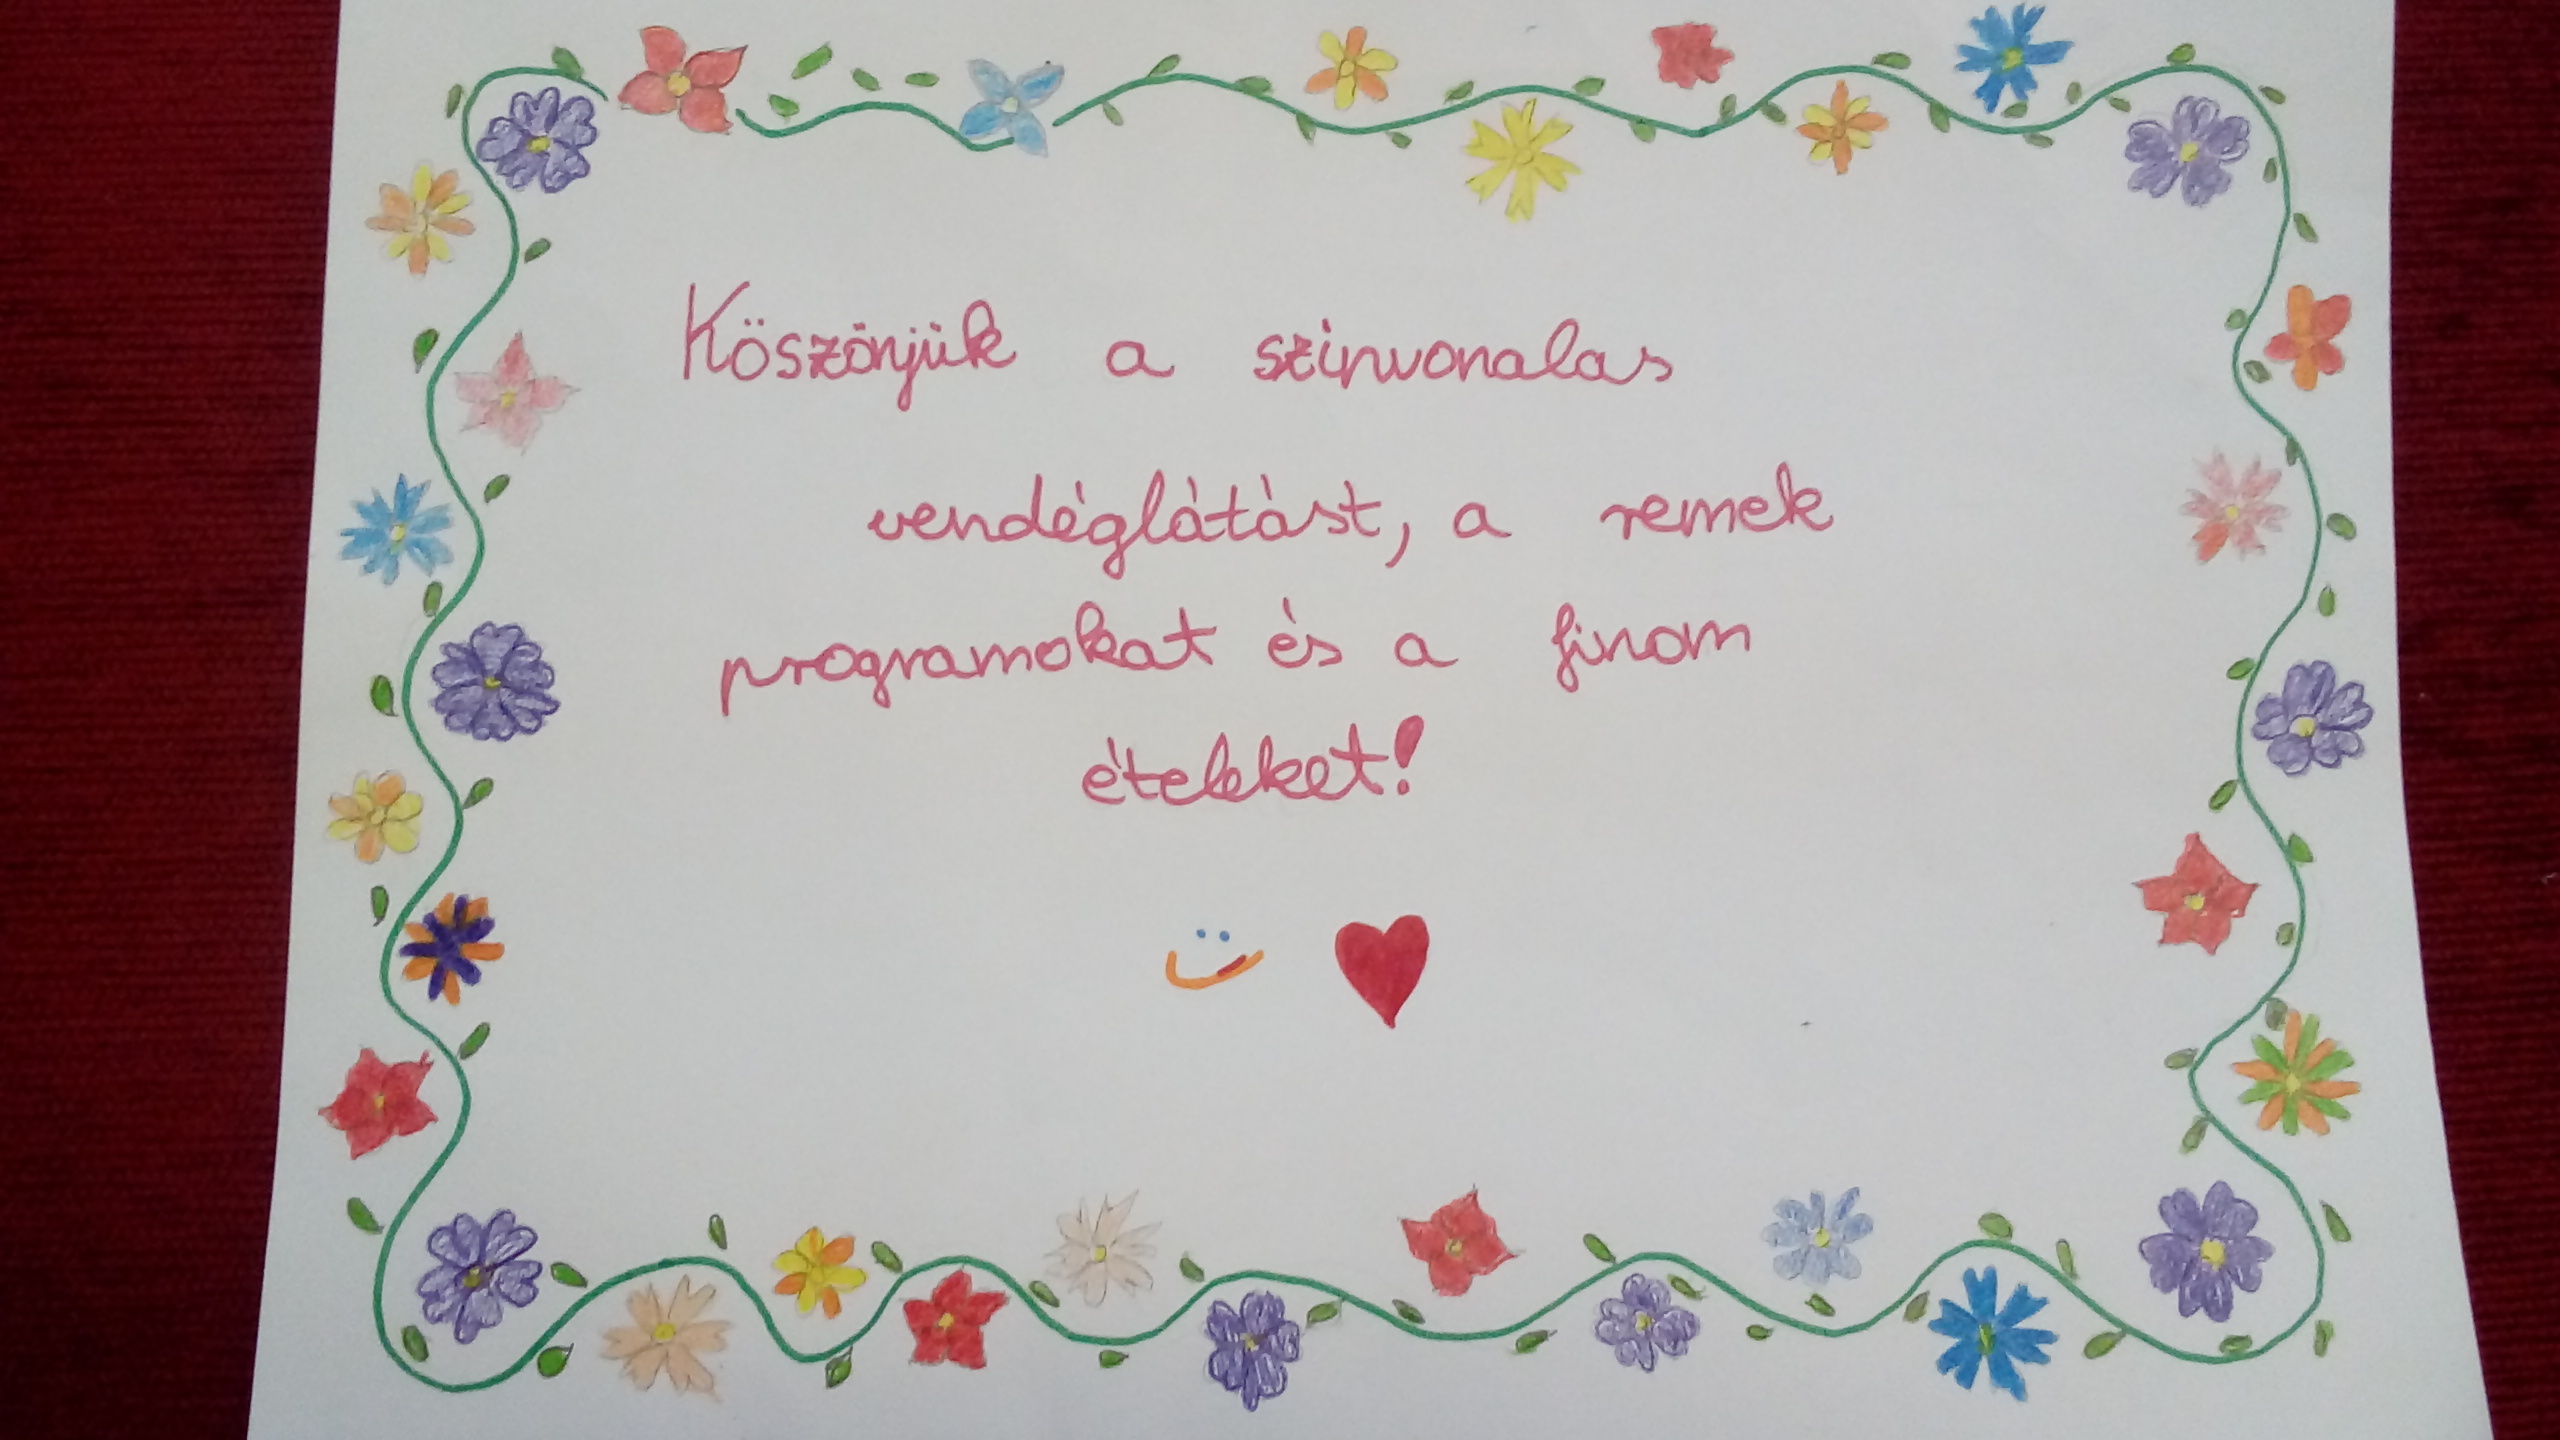 Köszönjük a szinvonalas
vendéglátást, a remek
programokat és a finom
ételeket!